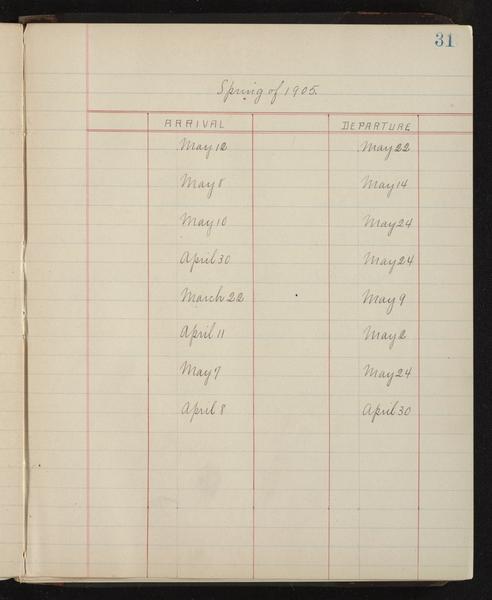 31
Spring of 1905.
ARRIVAL DEPARTURE
May 12 May 22
May 8 May 14
May 10 May 24
April 30 May 24
March 22 May 9
April 11 May 2
May 7 May 24
April 8 April 30